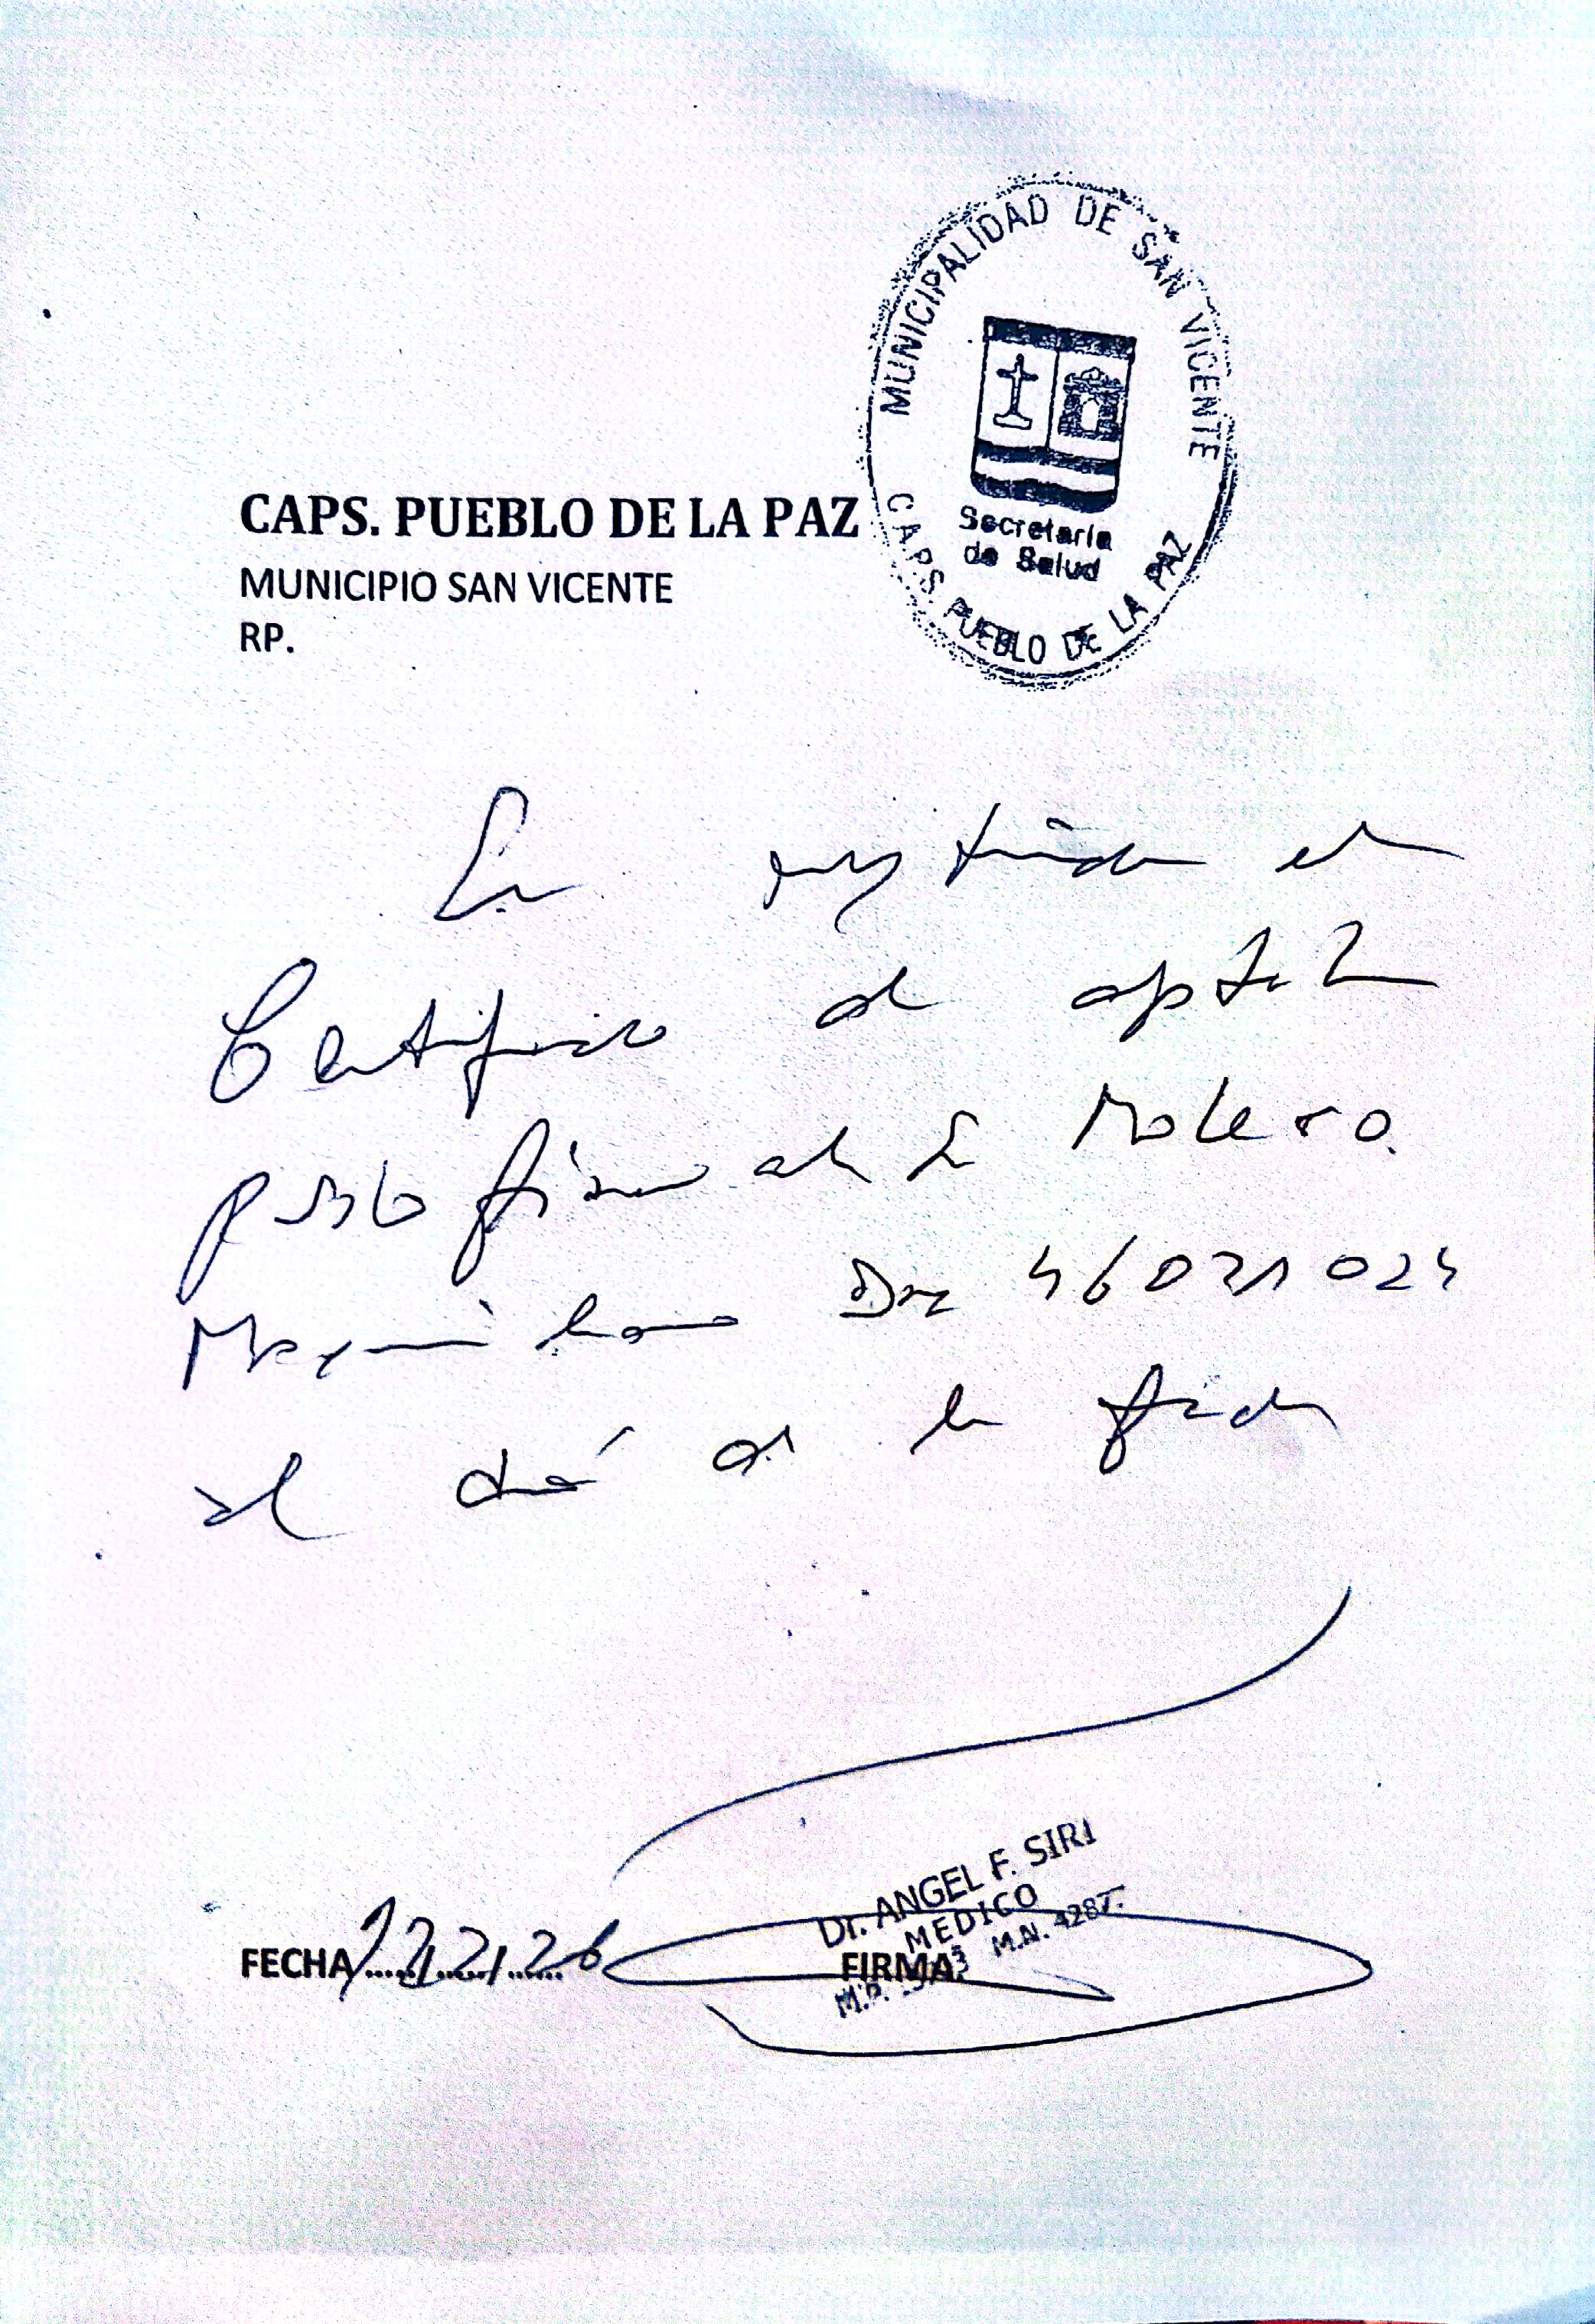 MUNICIPALIDAD DE SAN VICENTE
Secretaria
de Salud
CAPS. PUEBLO DE LA PAZ
CAPS. PUEBLO DE LA PAZ
MUNICIPIO SAN VICENTE
RP.
Se el
Certificado de
físico de Molero
Maximiliano DNI 46021024
al día de la fecha
Dr. ANGEL F. SIRI
MEDICO
M.P. M.N.
FECHA 12/2/26 FIRMA